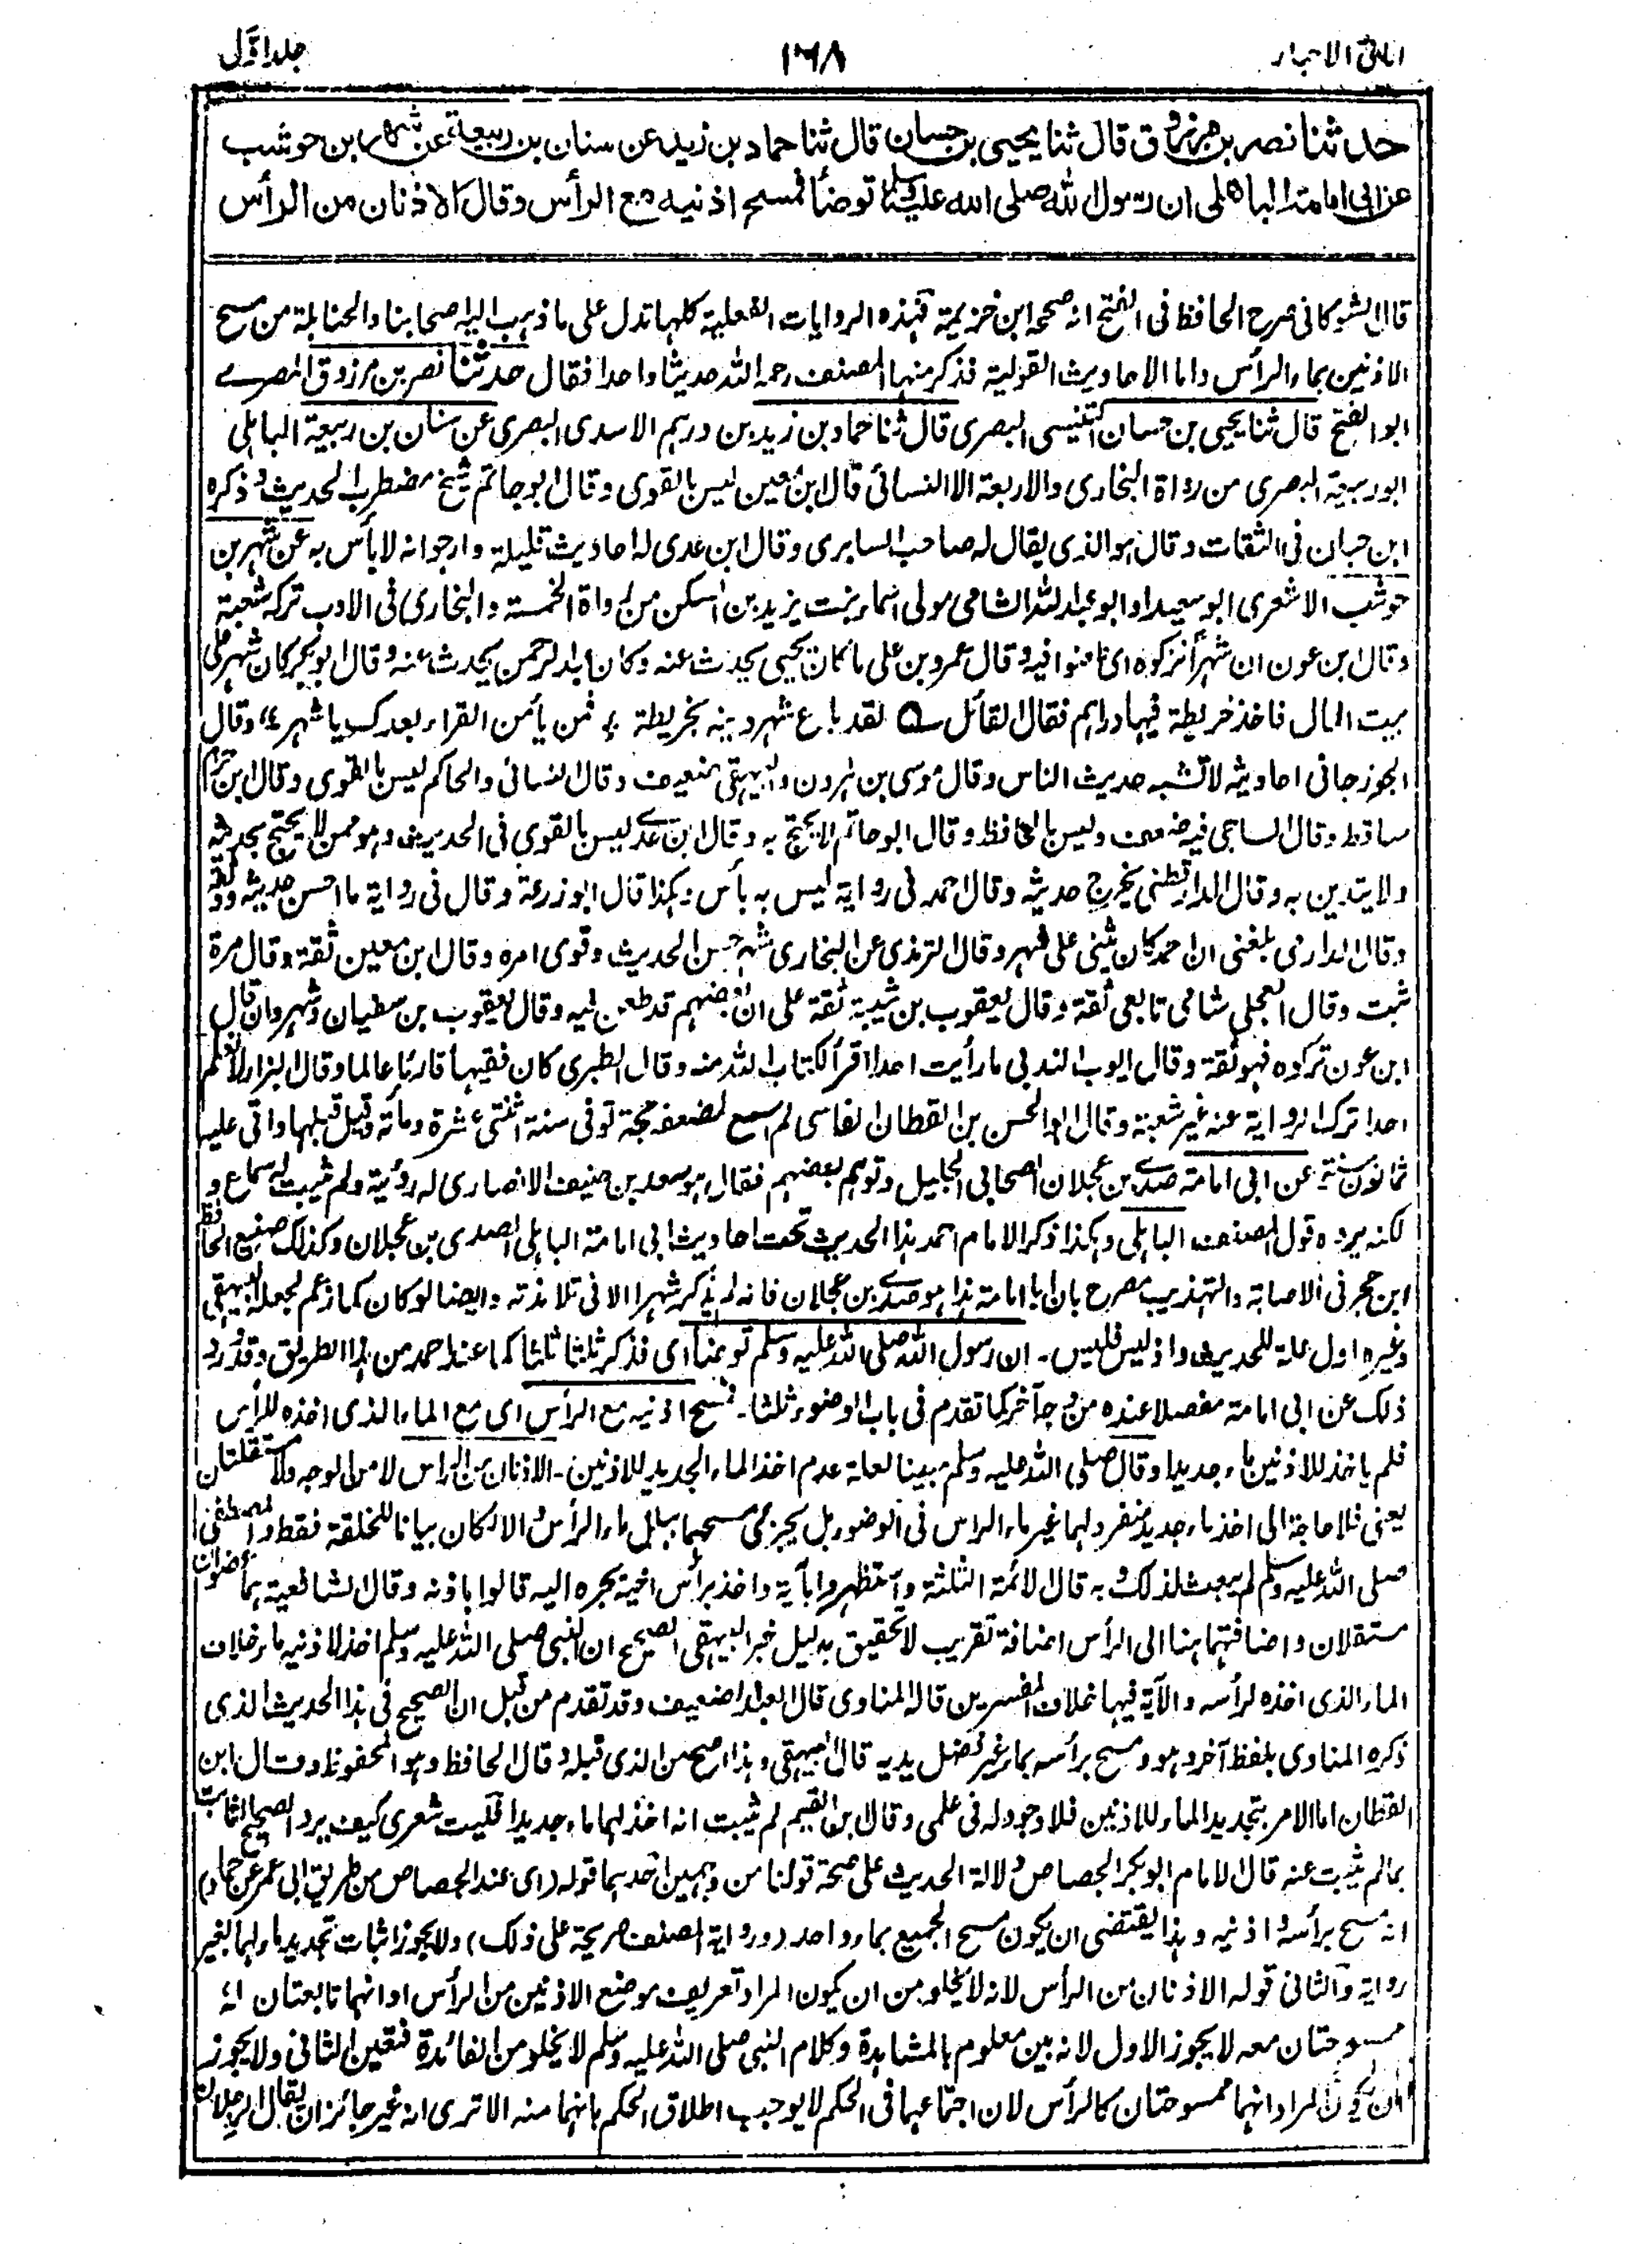 امانی الاحبار
۱۶۸
جلد اوّل
حدثنا نصر بن مرزوق قال ثنا يحيى بن حسان قال ثنا حماد بن زيد عن سنان بن ربيعة عن شهر بن حوشب
عن ابى امامة الباهلى ان رسول الله صلى الله عليه وسلم توضأ فمسح اذنيه مع الرأس وقال الاذنان من الرأس
قال الشوكانى صرح الحافظ فى الفتح انه صححه ابن خزيمة فهذه الروايات الفعلية كلها تدل على ما ذهب اليه اصحابنا والحنابلة من مسح
الاذنين بماء الرأس واما الاحاديث القولية فذكر منها المصنف رحمه الله حديثا واحدا فقال حدثنا نصر بن مرزوق المصرے
ابو الفتح قال ثنا يحيى بن حسان التنيسى البصرى قال ثنا حماد بن زيد بن درهم الاسدى البصرى عن سنان بن ربيعة الباهلى
ابو ربيعة البصرى من رواة البخارى والاربعة الا النسائى قال ابن معين ليس بالقوى وقال ابو حاتم شيخ مضطرب الحديث وذكره
ابن حبان فى الثقات وقال هو الذى يقال له صاحب السابرى وقال ابن عدى له احاديث قليلة وارجو انه لا بأس به عن شهر بن
حوشب الاشعرى ابو سعيد او ابو عبد الله الشامى مولى اسماء بنت يزيد بن السكن من رواة الخمسة والبخارى فى الادب تركه شعبة
وقال ابن عون ان شهرا نزكوه اى طعنوا فيه وقال عمرو بن على ما كان يحيى يحدث عنه وكان عبد الرحمن يحدث عنه وقال ابو بكر كان شهر على
بيت المال فاخذ خريطة فيها دراهم فقال القائل ے لقد باع شهر دينه بخريطة ؛ فمن يأمن القراء بعدك يا شهر ؛ وقال
الجوزجانى احاديثه لا تشبه حديث الناس وقال موسى بن هرون والبيهقى ضعيف وقال النسائى والحاكم ليس بالقوى وقال ابن حزم
ساقط وقال الساجى فيه ضعف وليس بالحافظ وقال ابو حاتم لا يحتج به وقال ابن عدے ليس بالقوى فى الحديث وهو ممن لا يحتج بحديثه
ولا يتدين به وقال الدارقطنى يخرج حديثه وقال احمد فى رواية ليس به بأس وكذا قال ابو زرعة وقال فى رواية ما احسن حديثه ووثقه
وقال الدارمى بلغنى ان احمد كان يثنى على شهر وقال الترمذى عن البخارى شهر حسن الحديث وقوى امره وقال ابن معين ثقة وقال مرة
ثبت وقال العجلى شامى تابعى ثقة وقال يعقوب بن شيبة ثقة على ان بعضهم قد طعن فيه وقال يعقوب بن سفيان وشهر وان قال
ابن عون تركوه فهو ثقة وقال ايوب الندبى ما رأيت احدا اقرأ لكتاب الله منه وقال الطبرى كان فقيها قارئا عالما وقال البزار لا نعلم
احدا ترك الرواية عنه غير شعبة وقال ابو الحسن بن القطان الفاسى لم اسمع لمضعفه حجة توفى سنة اثنتى عشرة ومأة وقيل قبلها واتى عليه
ثمانون سنة عن ابى امامة صدے بن عجلان الصحابى الجليل وتوهم بعضهم فقال هو سعد بن حنيف الانصارى له رؤية ولم يثبت له سماع و
لكنه يرده قول المصنف الباهلى وهكذا ذكر الامام احمد هذا الحديث تحت احاديث ابى امامة الباهلى الصدى بن عجلان وكذلك صنيع الحافظ
ابن حجر فى الاصابة والتهذيب مصرح بان ابا امامة هذا هو صدے بن عجلان فانه لم يذكر شهرا الا فى تلامذته وايضا لو كان كما زعم لجعله البيهقى
وغيره اول علة للحديث واذ ليس فليس ۔ ان رسول الله صلى الله عليه وسلم توضأ اى فذكر ثلثا ثلثا كما عند احمد من هذا الطريق وقد ورد
ذلك عن ابى امامة مفصلا عنده من وجه آخر كما تقدم فى باب الوضوء ثلثا ۔ فمسح اذنيه مع الرأس اى مع الماء الذى اخذه للرأس
فلم ياخذ للاذنين ماء جديدا وقال صلى الله عليه وسلم مبينا لعلة عدم اخذ الماء الجديد للاذنين ۔ الاذنان من الراس لا من الوجه ولا مستقلتان
يعنى فلا حاجة الى اخذ ماء جديد منفرد لهما غير ماء الراس فى الوضوء بل يجزى مسحهما ببلل ماء الرأس والا لكان بيانا للخلقة فقط والمصطفى
صلى الله عليه وسلم لم يبعث لذلك وبه قال الائمة الثلثة واستظهروا بآية واخذ برأس اخيه يجره اليه قالوا باذنه وقال الشافعية هما عضوان
مستقلان واضافتهما هنا الى الرأس اضافة تقريب لا تحقيق بدليل خبر البيهقى الصحيح ان النبى صلى الله عليه وسلم اخذ لاذنيه ماء خلاف
الماء الذى اخذه لرأسه والآية فيها خلاف للمفسرين قاله المناوى قال العبد الضعيف وقد تقدم من قبل ان الصحيح فى هذا الحديث الذى
ذكره المناوى بلفظ آخر وهو ومسح برأسه بماء غير فضل يديه قال البيهقى وهذا اصح من الذى قبله وقال الحافظ وهو المحفوظ وقال ابن
القطان اما الامر بتجديد الماء للاذنين فلا وجود له فى علمى وقال ابن القيم لم يثبت انه اخذ لهما ماء جديدا فليت شعرى كيف يرد الصحيح الثابت
بما لم يثبت عنه قال الامام ابو بكر الجصاص دلالة الحديث على صحة قولنا من وجهين احدهما قوله (اى عند الجصاص من طريق ابى عمر عن حماد)
انه مسح برأسه واذنيه وهذا يقتضى ان يكون مسح الجميع بماء واحد (ورواية المصنف صريحة على ذلك) ولا يجوز اثبات تجديد ماء لهما بغير
رواية والثانى قوله الاذنان من الرأس لانه لا يخلو من ان يكون المراد تعريف موضع الاذنين من الرأس او انهما تابعتان له
ممسوحتان معه لا يجوز الاول لانه بين معلوم بالمشاهدة وكلام النبى صلى الله عليه وسلم لا يخلو من الفائدة فتعين الثانى ولا يجوز
ان يكون المراد انهما ممسوحتان كالرأس لان اجتماعهما فى الحكم لا يوجب اطلاق الحكم بانهما منه الا ترى انه غير جائز ان يقال الرجلان